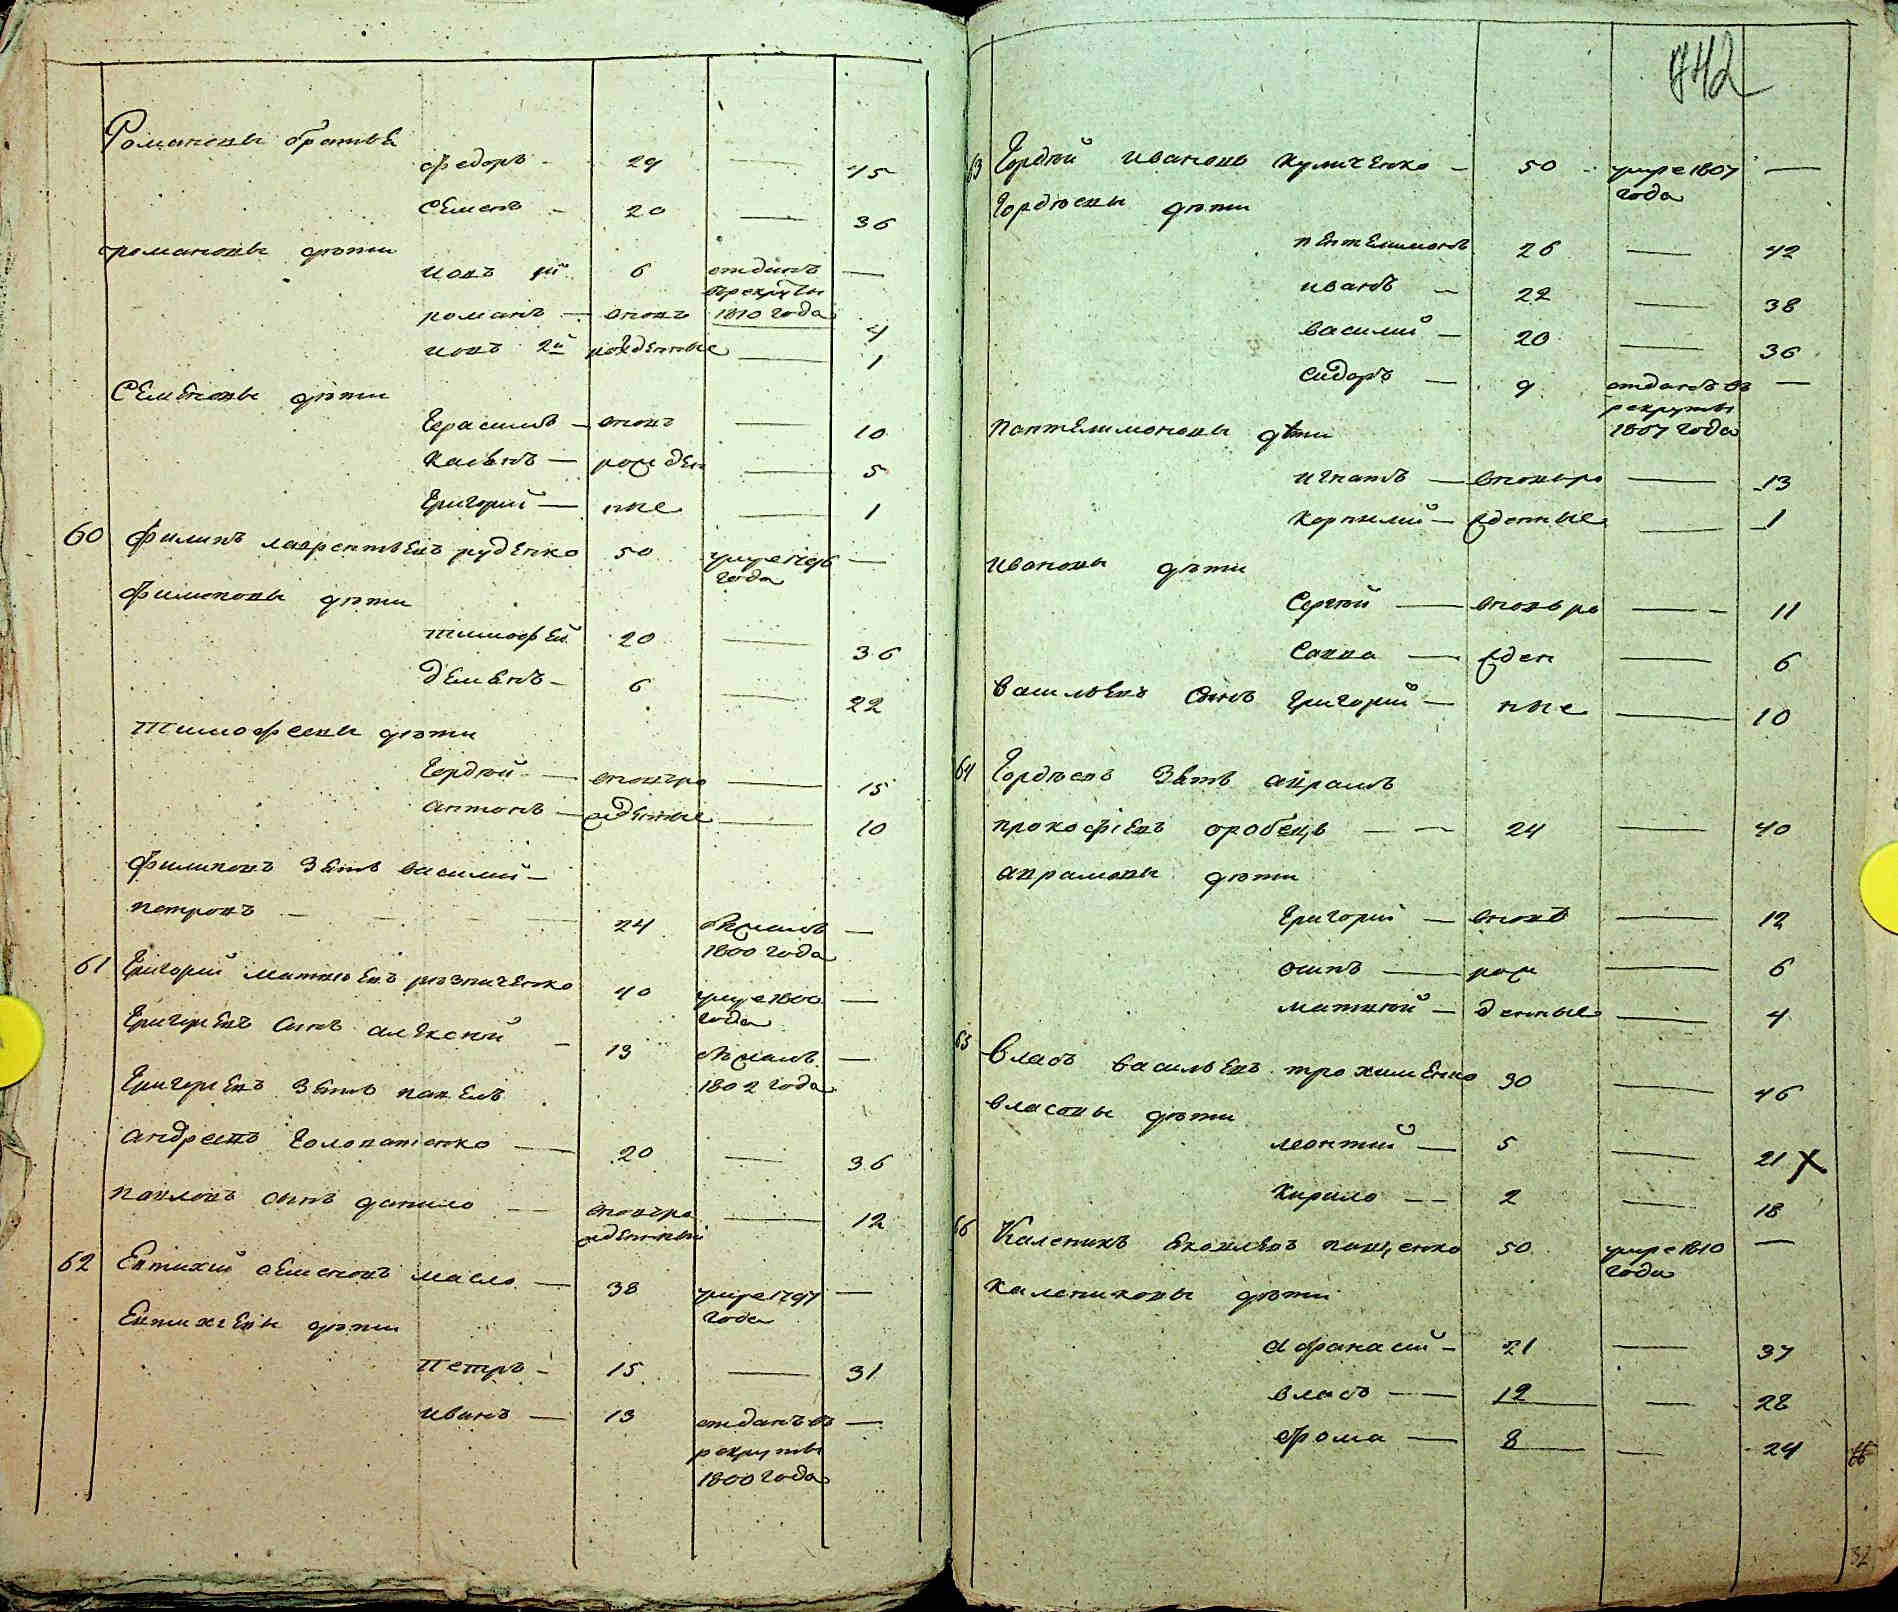 Романовы братья
федоръ - 29 — 45
Семенъ - 20 — 36
романовы дѣти
иовъ 1й 6 отданъ —
врекруты
романъ — вновь 1810 года 4
иовъ 2й рожденные — 1
Семеновы дѣти
Герасимъ — вновь — 10
— рожден — 5
Григорий — ные — 1
60 Филипъ лаврентьевъ руденко 50 умре 1796 —
года
Филиповы дѣти
тимофей 20 — 36
дементъ - 6 — 22
Тимофеевы дѣти
Гордѣй — вновьро — 15
антонъ — жденные — 10
Филиповъ зять василий —
петровъ - 24 бѣжалъ —
1800 года
61 Григорий матвѣевъ резниченко 40 умре 1800 —
года
Григорьевъ сынъ алексѣй - 13 бѣжалъ —
1802 года
Григорьевъ зять павелъ
андреевъ Голопатенко — 20 — 36
павловъ сынъ данило — вновьро — 12
жденный
62 Евтихий семеновъ масло — 38 умре 1797 —
года
Евтихиевы дѣти
Петръ - 15 — 31
иванъ — 13 отданъ въ —
рекруты
1800 года
742
63 Гордѣй ивановъ куличенко - 50 - умре 1807 —
года
Гордѣевы дѣти
пентелимонъ 26 — 42
иванъ - 22 — 38
василий - 20 — 36
сидоръ — 9 отданъ въ —
рекруты
1807 года
пантелимоновы дѣти
игнатъ — вновьро — 13
корнилий — жденные — 1
ивановы дѣти
Сергѣй — вновьро — 11
Савва — жден — 6
Васильевъ сынъ Григорий — ные — 10
64 Гордѣевъ зять авраамъ
прокофиевъ оробецъ — 24 — 40
аврамовы дѣти
Григорий — вновь — 12
осипъ — рож — 6
матвѣй — денные — 4
65 Власъ васильевъ трохименко 30 — 46
власовы дѣти
леонтий — 5 — 21 X
кирило — 2 — 18
66 Каленикъ яковлевъ пащенко 50 умре 1810 —
года
калениковы дѣти
Афанасий - 21 — 37
власъ — 12 — 28
фома — 8 — 24
32